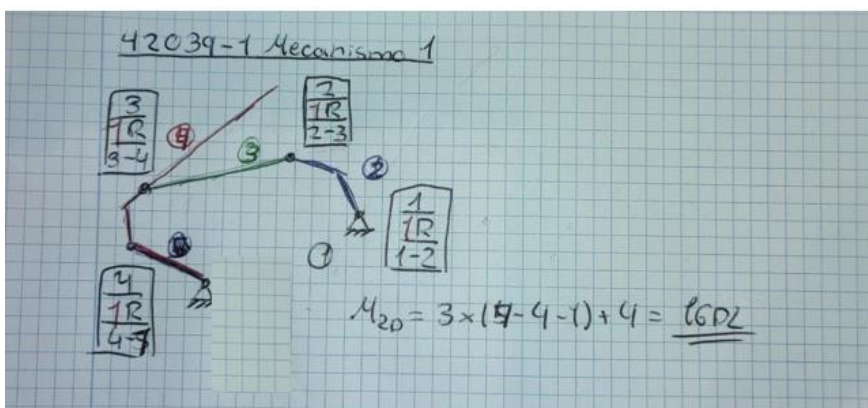 42039-1 Mecanismo 1
3
1R
3-4
2
1R
2-3
3
2
1
1R
1-2
1
4
1R
M2D = 3×(5-4-1)+4 =